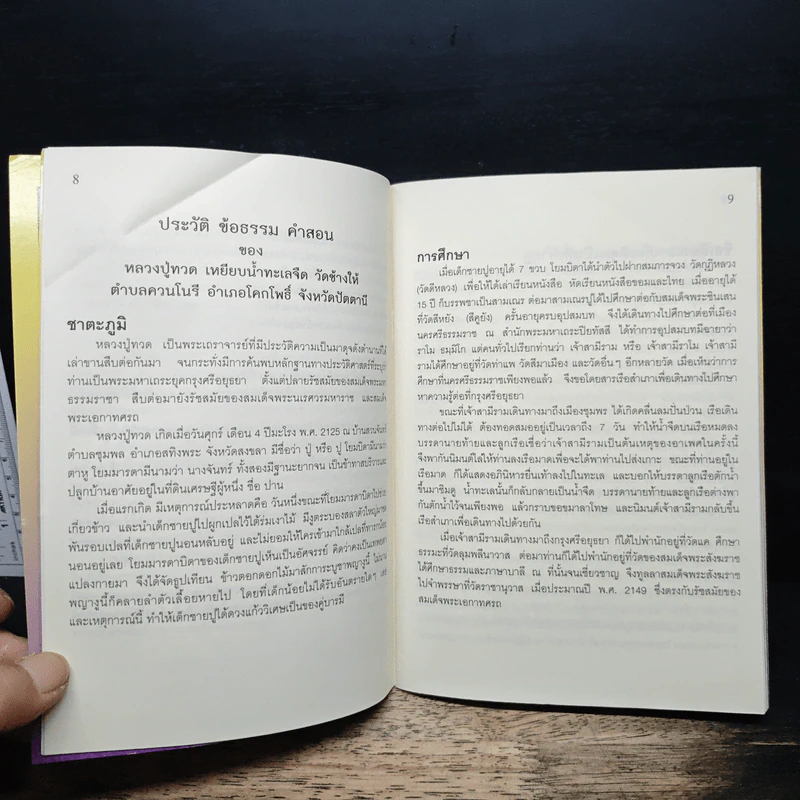 8
ประวัติ ข้อธรรม คำสอน
ของ
หลวงปู่ทวด เหยียบน้ำทะเลจืด วัดช้างให้
ตำบลควนโนรี อำเภอโคกโพธิ์ จังหวัดปัตตานี
ชาตะภูมิ
หลวงปู่ทวด เป็นพระเถราจารย์ที่มีประวัติความเป็นมาดุจดังตำนานที่ได้
เล่าขานสืบต่อกันมา จนกระทั่งมีการค้นพบหลักฐานทางประวัติศาสตร์ที่ระบุว่า
ท่านเป็นพระมหาเถระยุคกรุงศรีอยุธยา ตั้งแต่ปลายรัชสมัยของสมเด็จพระมหา
ธรรมราชา สืบต่อมายังรัชสมัยของสมเด็จพระนเรศวรมหาราช และสมเด็จ
พระเอกาทศรถ
หลวงปู่ทวด เกิดเมื่อวันศุกร์ เดือน 4 ปีมะโรง พ.ศ. 2125 ณ บ้านสวนจันทร์
ตำบลชุมพล อำเภอสทิงพระ จังหวัดสงขลา มีชื่อว่า ปู่ หรือ ปู โยมบิดามีนามว่า
ตาหู โยมมารดามีนามว่า นางจันทร์ ทั้งสองมีฐานะยากจน เป็นข้าทาสบริวารและ
ปลูกบ้านอาศัยอยู่ในที่ดินเศรษฐีผู้หนึ่ง ชื่อ ปาน
เมื่อแรกเกิด มีเหตุการณ์ประหลาดคือ วันหนึ่งขณะที่โยมมารดาบิดาไปช่วย
เกี่ยวข้าว และนำเด็กชายปูไปผูกเปลไว้ใต้ร่มเงาไม้ มีงูตระบองสลาตัวใหญ่มาขด
พันรอบเปลที่เด็กชายปูนอนหลับอยู่ และไม่ยอมให้ใครเข้ามาใกล้เปลที่ทารกน้อย
นอนอยู่เลย โยมมารดาบิดาของเด็กชายปูเห็นเป็นอัศจรรย์ คิดว่าคงเป็นเทพยดา
แปลงกายมา จึงได้จัดธูปเทียน ข้าวตอกดอกไม้มาสักการะบูชาพญางูนี้ ไม่นาน
พญางูนี้ก็คลายลำตัวเลื้อยหายไป โดยที่เด็กน้อยไม่ได้รับอันตรายใดๆ เลย
และเหตุการณ์นี้ ทำให้เด็กชายปูได้ดวงแก้ววิเศษเป็นของคู่บารมี
9
การศึกษา
เมื่อเด็กชายปูอายุได้ 7 ขวบ โยมบิดาได้นำตัวไปฝากสมภารจวง วัดกุฎิหลวง
(วัดดีหลวง) เพื่อให้ได้เล่าเรียนหนังสือ หัดเรียนหนังสือขอมและไทย เมื่ออายุได้
15 ปี ก็บรรพชาเป็นสามเณร ต่อมาสามเณรปูได้ไปศึกษาต่อกับสมเด็จพระชินเสน
ที่วัดสีหยัง (สีคูยัง) ครั้นอายุครบอุปสมบท จึงได้เดินทางไปศึกษาต่อที่เมือง
นครศรีธรรมราช ณ สำนักพระมหาเถระปิยทัสสี ได้ทำการอุปสมบทมีฉายาว่า
ราโม ธมฺมิโก แต่คนทั่วไปเรียกท่านว่า เจ้าสามีราม หรือ เจ้าสามีราโม เจ้าสามี
รามได้ศึกษาอยู่ที่วัดท่าแพ วัดสีมาเมือง และวัดอื่นๆ อีกหลายวัด เมื่อเห็นว่าการ
ศึกษาที่นครศรีธรรมราชเพียงพอแล้ว จึงขอโดยสารเรือสำเภาเพื่อเดินทางไปศึกษา
หาความรู้ต่อที่กรุงศรีอยุธยา
ขณะที่เจ้าสามีรามเดินทางมาถึงเมืองชุมพร ได้เกิดคลื่นลมปั่นป่วน เรือเดิน
ทางต่อไปไม่ได้ ต้องทอดสมออยู่เป็นเวลาถึง 7 วัน ทำให้น้ำจืดบนเรือหมดลง
บรรดานายท้ายและลูกเรือเชื่อว่าเจ้าสามีรามเป็นต้นเหตุของอาเพศในครั้งนี้
จึงพากันนิมนต์ใสให้ท่านลงเรือมาดเพื่อจะได้พาท่านไปส่งเกาะ ขณะที่ท่านอยู่ใน
เรือมาด ก็ได้แสดงอภินิหารยื่นเท้าลงไปในทะเล และบอกให้บรรดาลูกเรือตักน้ำ
ขึ้นมาชิมดู น้ำทะเลนั้นก็กลับกลายเป็นน้ำจืด บรรดานายท้ายและลูกเรือต่างพา
กันตักน้ำไว้จนเพียงพอ แล้วกราบขอขมาลาโทษ และนิมนต์เจ้าสามีรามกลับขึ้น
เรือสำเภาเพื่อเดินทางไปด้วยกัน
เมื่อเจ้าสามีรามเดินทางมาถึงกรุงศรีอยุธยา ก็ได้ไปพำนักอยู่ที่วัดแค ศึกษา
ธรรมะที่วัดลุมพลีนาวาส ต่อมาท่านก็ได้ไปพำนักอยู่ที่วัดของสมเด็จพระสังฆราช
ได้ศึกษาธรรมและภาษาบาลี ณ ที่นั้นจนเชี่ยวชาญ จึงทูลลาสมเด็จพระสังฆราช
ไปจำพรรษาที่วัดราชานุวาส เมื่อประมาณปี พ.ศ. 2149 ซึ่งตรงกับรัชสมัยของ
สมเด็จพระเอกาทศรถ